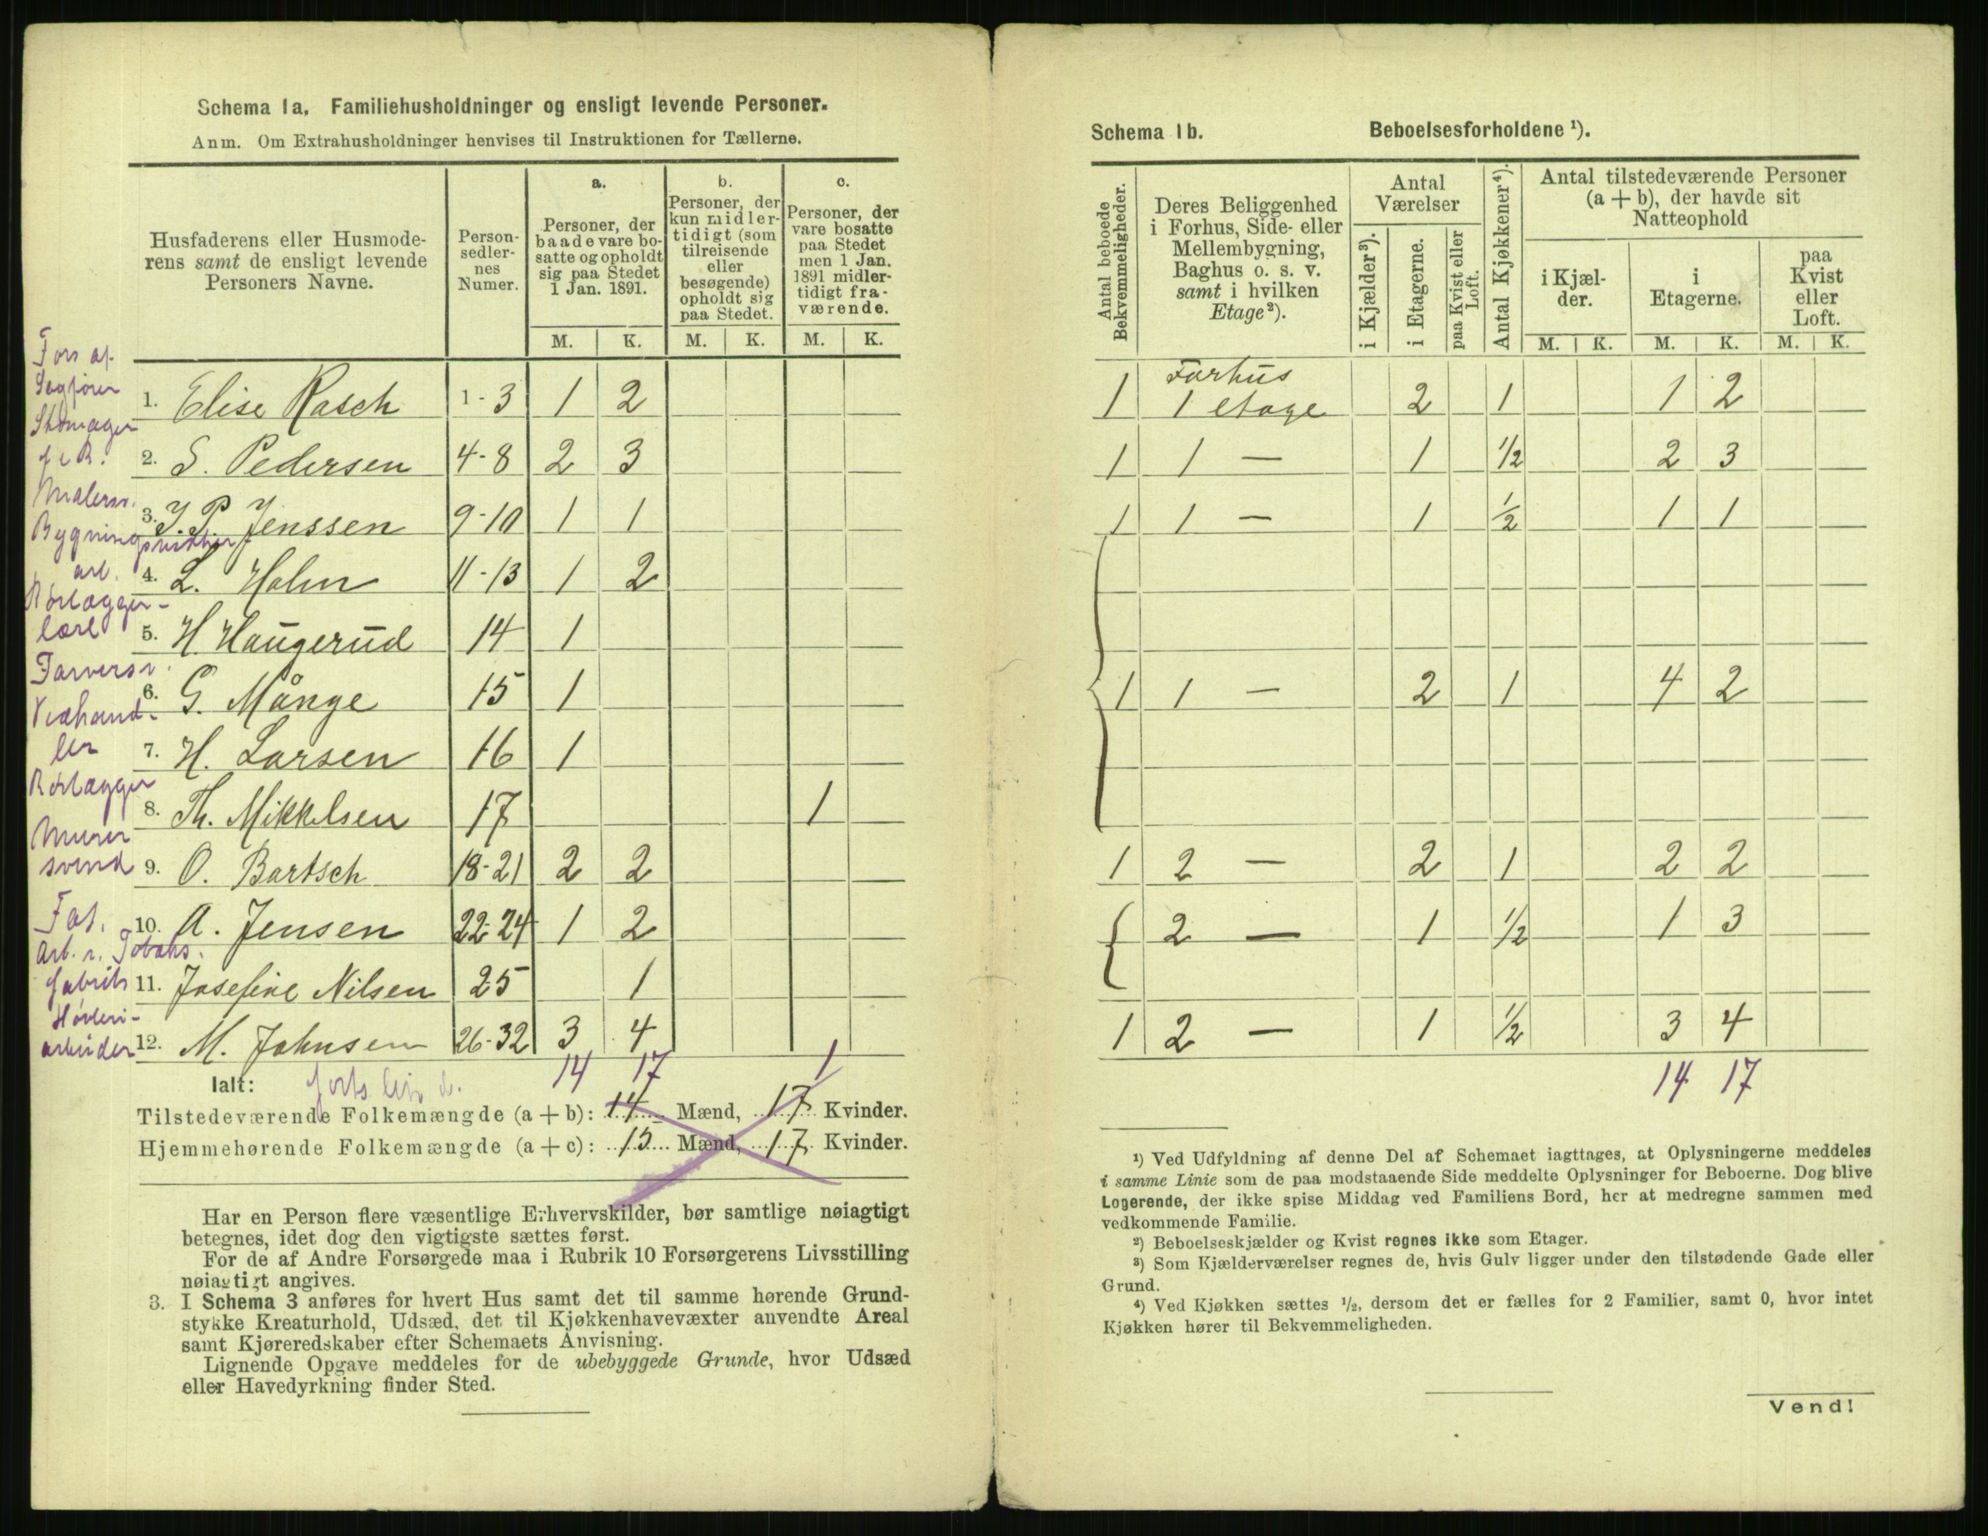 Schema 1a. Familiehusholdninger og ensligt levende Personer.
Anm. Om Extrahusholdninger henvises til Instruktionen for Tællerne.
Husfaderens eller Husmode-
rens samt de ensligt levende
Personers Navne.
Person-
sedler-
nes
Numer.
a.
Personer, der
baade vare bo-
satte og opholdt
sig paa Stedet
1 Jan. 1891.
b.
Personer, der
kun midler-
tidigt (som
tilreisende
eller
besøgende)
opholdt sig
paa Stedet.
c.
Personer, der
vare bosatte
paa Stedet
men 1 Jan.
1891 midler-
tidigt fra-
værende.
M. K. M. K. M. K.
1. Elise Rasch 1-3 1 2
2. S. Pedersen 4-8 2 3
3. J. P. Jenssen 9-10 1 1
4. L. Holm 11-13 1 2
5. H. Haugerud 14 1
6. G. Månge 15 1
7. H. Larsen 16 1
8. Th. Mikkelsen 17 1
9. O. Bartsch 18-21 2 2
10. A. Jensen 22-24 1 2
11. Josefine Nilsen 25 1
12. M. Johnsen 26-32 3 4
Fors af
Sagfører
Skomager
Malersv.
Bygnings
arb.
Rørlægger-
lærl
Farversv.
Vedhand-
ler
Rørlægger
Murer
svend
Fat.
Arb. v. Tobaks.
fabrik
Høvleri-
arbeider
14 17 1
Ialt:
Tilstedeværende Folkemængde (a + b): 14 Mænd, 17 Kvinder.
Hjemmehørende Folkemængde (a + c): 15 Mænd, 17 Kvinder.
Har en Person flere væsentlige Erhvervskilder, bør samtlige nøiagtigt
betegnes, idet dog den vigtigste sættes først.
For de af Andre Forsørgede maa i Rubrik 10 Forsørgerens Livsstilling
nøiagtigt angives.
3. I Schema 3 anføres for hvert Hus samt det til samme hørende Grund-
stykke Kreaturhold, Udsæd, det til Kjøkkenhavevæxter anvendte Areal
samt Kjøreredskaber efter Schemaets Anvisning.
Lignende Opgave meddeles for de ubebyggede Grunde, hvor Udsæd
eller Havedyrkning finder Sted.
Schema 1b. Beboelsesforholdene ¹).
Antal beboede
Bekvemmeligheder.
Deres Beliggenhed
i Forhus, Side- eller
Mellembygning,
Baghus o. s. v.
samt i hvilken
Etage²).
Antal
Værelser
i Kjælder³).
i Etagerne.
paa Kvist eller
Loft.
Antal Kjøkkener⁴).
Antal tilstedeværende Personer
(a + b), der havde sit
Natteophold
i Kjæl-
der.
i
Etagerne.
paa
Kvist
eller
Loft.
M. K. M. K. M. K.
Forhus
1 1 etage 2 1 1 2
1 1 — 1 ½ 2 3
1 1 — 1 ½ 1 1
1 1 — 2 1 4 2
1 2 — 2 1 2 2
2 — 1 ½ 1 3
1 2 — 1 ½ 3 4
14 17
¹) Ved Udfyldning af denne Del af Schemaet iagttages, at Oplysningerne meddeles
i samme Linie som de paa modstaaende Side meddelte Oplysninger for Beboerne. Dog blive
Logerende, der ikke spise Middag ved Familiens Bord, her at medregne sammen med
vedkommende Familie.
²) Beboelseskjælder og Kvist regnes ikke som Etager.
³) Som Kjælderværelser regnes de, hvis Gulv ligger under den tilstødende Gade eller
Grund.
⁴) Ved Kjøkken sættes ½, dersom det er fælles for 2 Familier, samt 0, hvor intet
Kjøkken hører til Bekvemmeligheden.
Vend!